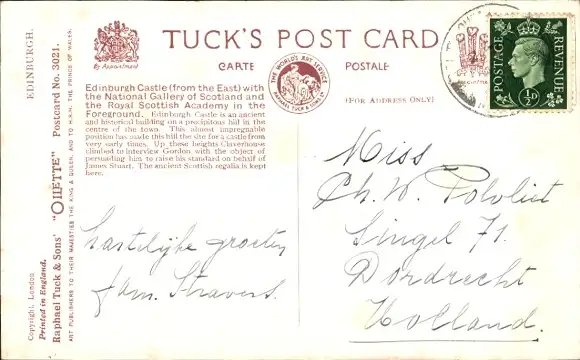 EDINBURGH.
Postcard No. 3021.
"OILETTE"
Raphael Tuck & Sons'
ART PUBLISHERS TO THEIR MAJESTIES THE KING & QUEEN, AND TO H.R.H. THE PRINCE OF WALES.
Copyright, London
Printed in England.
By Appointment
TUCK'S POST CARD
CARTE POSTALE
THE WORLD'S ART SERVICE
RAPHAEL TUCK & SONS LTD
(FOR ADDRESS ONLY)
Edinburgh Castle (from the East) with
the National Gallery of Scotland and
the Royal Scottish Academy in the
Foreground. Edinburgh Castle is an ancient
and historical building on a precipitous hill in the
centre of the town. This almost impregnable
position has made this hill the site for a castle from
very early times. Up these heights Claverhouse
climbed to interview Gordon with the object of
persuading him to raise his standard on behalf of
James Stuart. The ancient Scottish regalia is kept
here.
hartelijke groeten
fam. Stravers.
Miss
Ch. W. Polvliet
Singel 71.
Dordrecht
Holland.
POSTAGE
REVENUE
½D